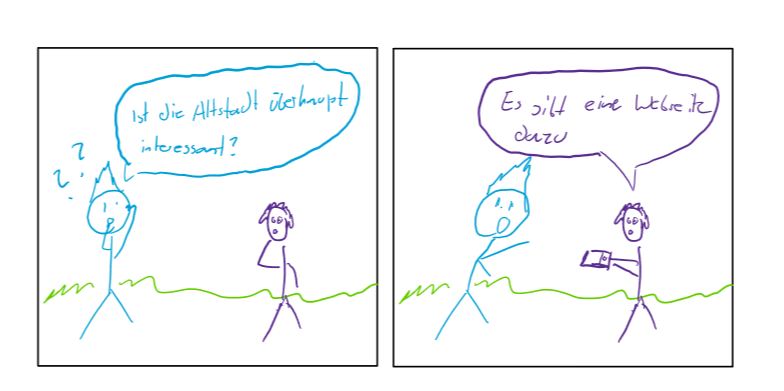 ? ?
Ist die Altstadt überhaupt
interessant?
Es gibt eine Webseite
dazu